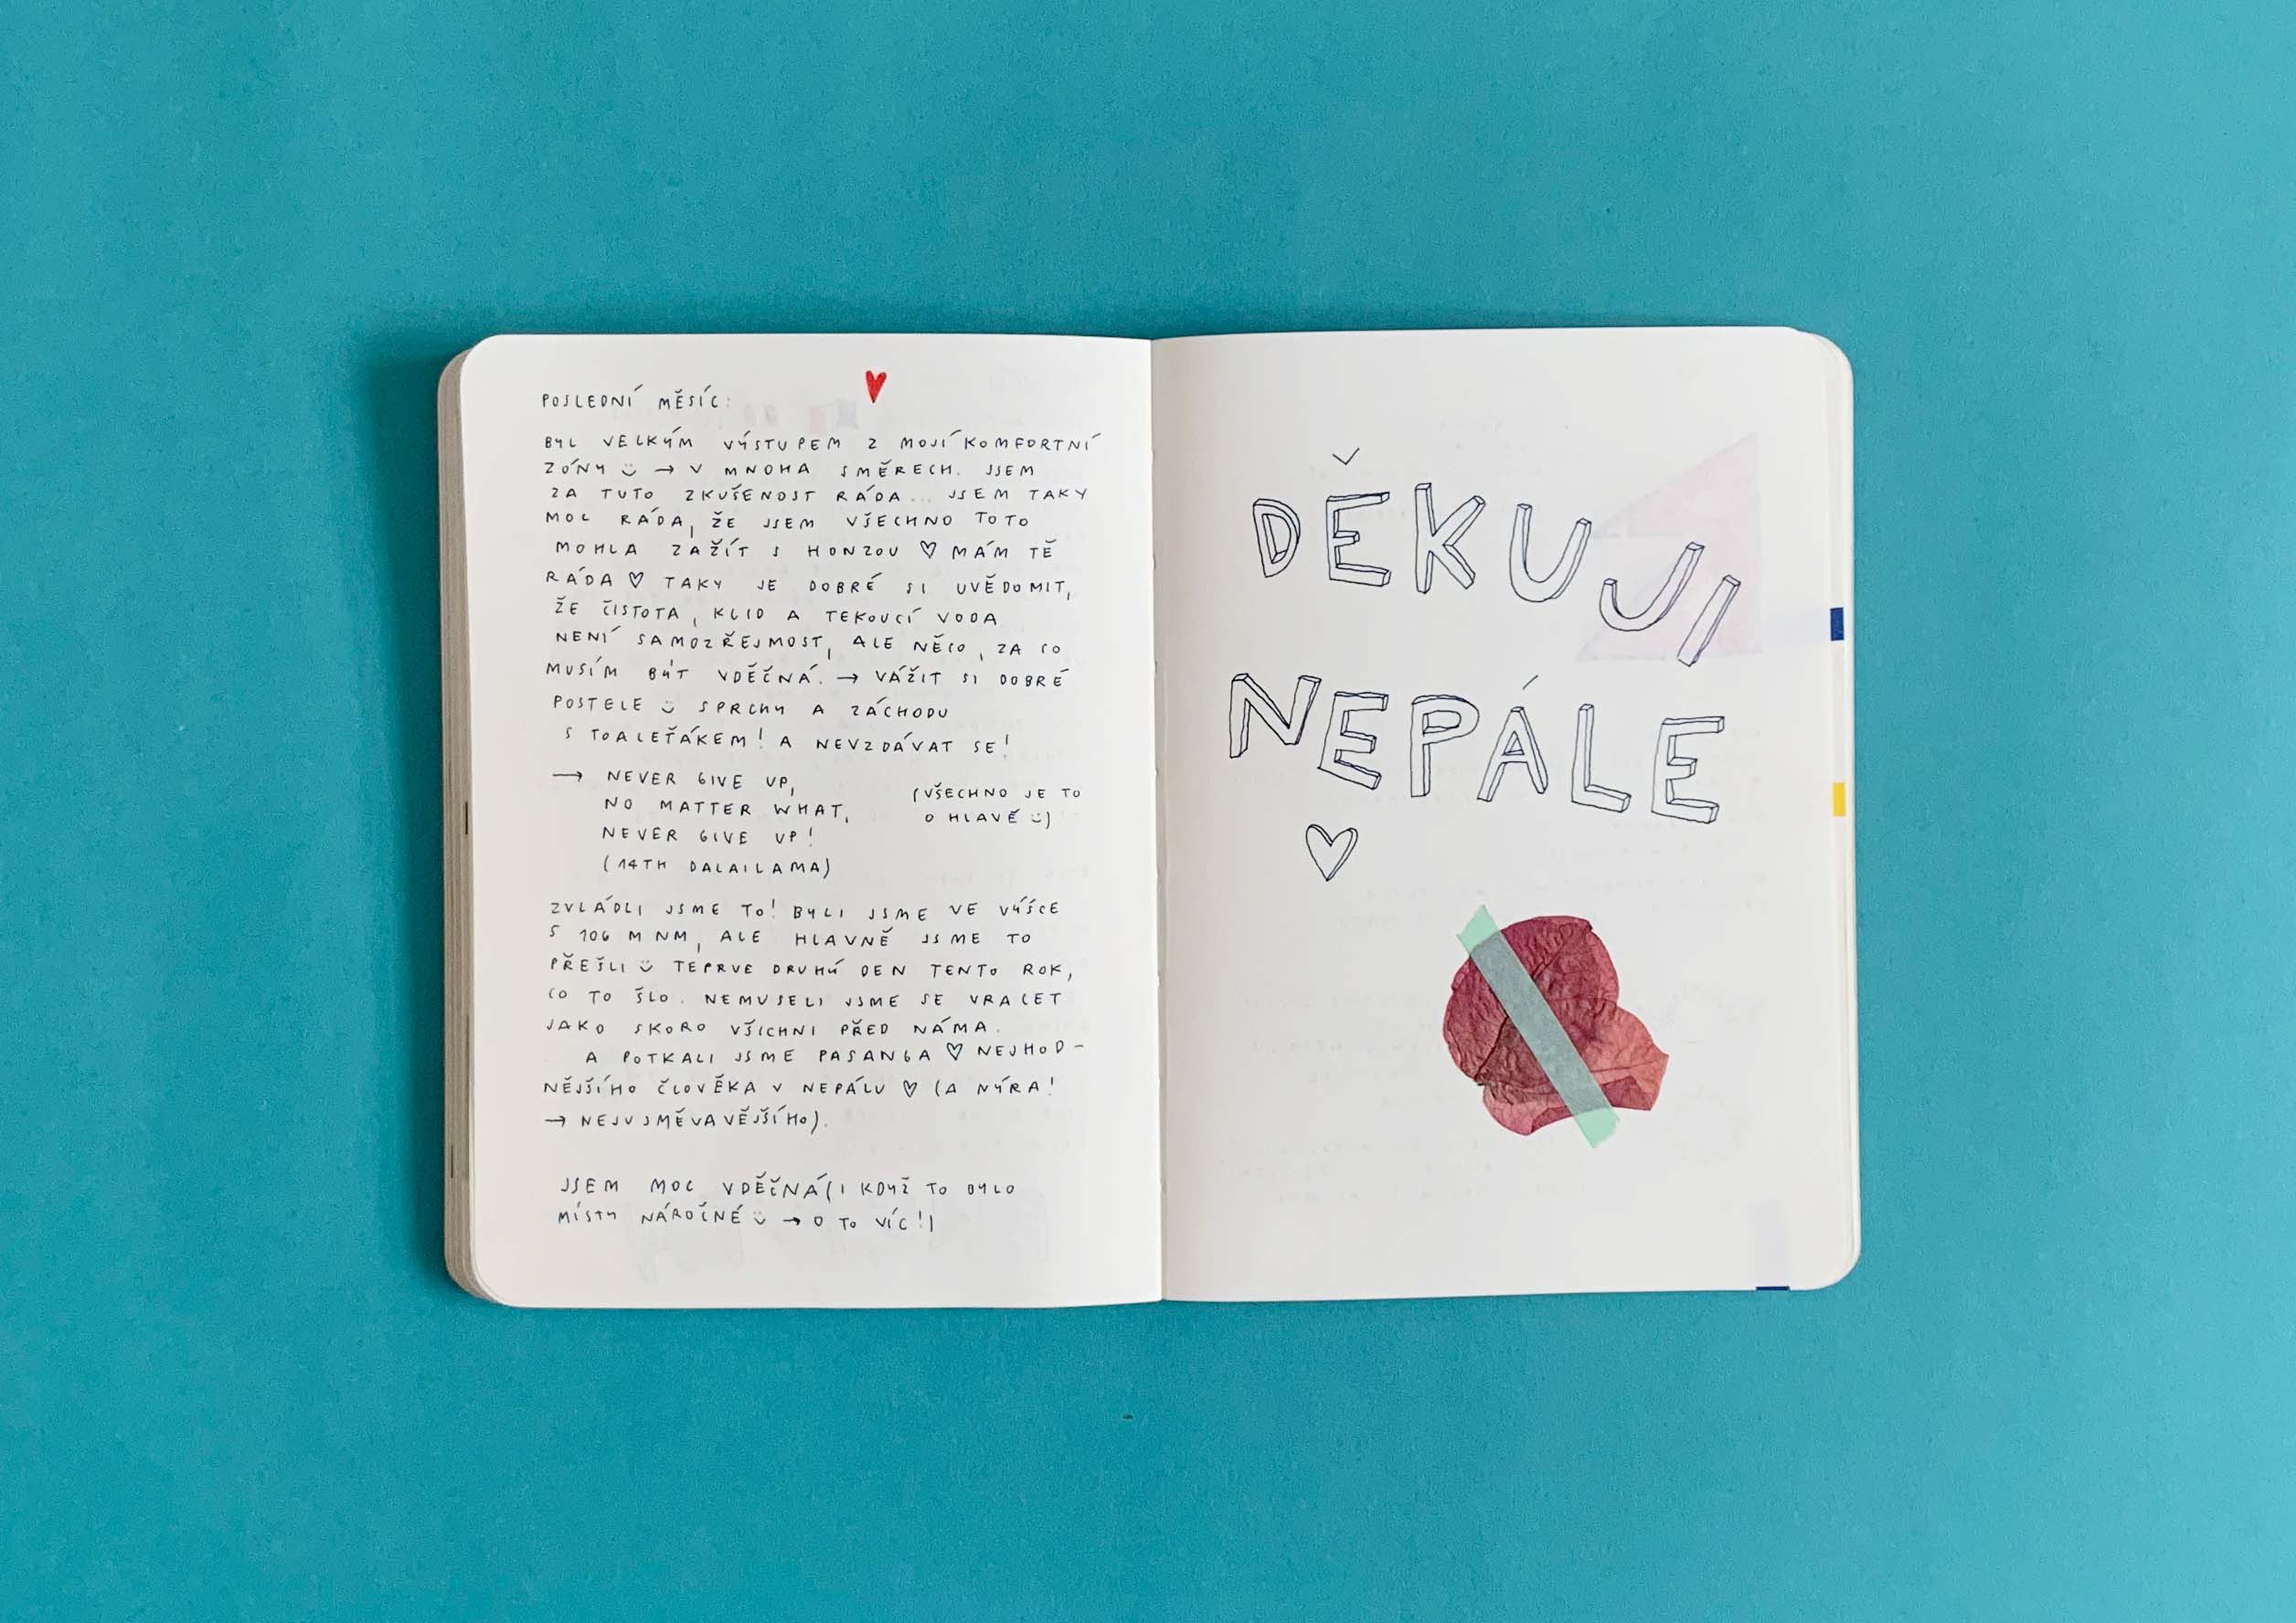 POSLEDNÍ MĚSÍC: ♥
BYL VELKÝM VÝSTUPEM Z MOJÍ KOMFORTNÍ
ZÓNY ☺ → V MNOHA SMĚRECH. JSEM
ZA TUTO ZKUŠENOST RÁDA... JSEM TAKY
MOC RÁDA, ŽE JSEM VŠECHNO TOTO
MOHLA ZAŽÍT S HONZOU ♡ MÁM TĚ
RÁDA ♡ TAKY JE DOBRÉ SI UVĚDOMIT,
ŽE ČISTOTA, KLID A TEKOUCÍ VODA
NENÍ SAMOZŘEJMOST, ALE NĚCO, ZA CO
MUSÍM BÝT VDĚČNÁ. → VÁŽIT SI DOBRÉ
POSTELE ☺ SPRCHY A ZÁCHODU
S TOALEŤÁKEM! A NEVZDÁVAT SE!
→ NEVER GIVE UP,
NO MATTER WHAT,
NEVER GIVE UP!
(14TH DALAILAMA)
(VŠECHNO JE TO
O HLAVĚ ☺)
ZVLÁDLI JSME TO! BYLI JSME VE VÝŠCE
5 106 M NM, ALE HLAVNĚ JSME TO
PŘEŠLI ☺ TEPRVE DRUHÝ DEN TENTO ROK,
CO TO ŠLO. NEMUSELI JSME SE VRACET
JAKO SKORO VŠICHNI PŘED NÁMA.
A POTKALI JSME PASANGA ♡ NEJHOD-
NĚJŠÍHO ČLOVĚKA V NEPÁLU ♡ (A NÝRA!
→ NEJUSMĚVAVĚJŠÍHO).
JSEM MOC VDĚČNÁ (I KDYŽ TO BYLO
MÍSTY NÁROČNÉ ☺ → O TO VÍC!)
DĚKUJI
NEPÁLE
♡